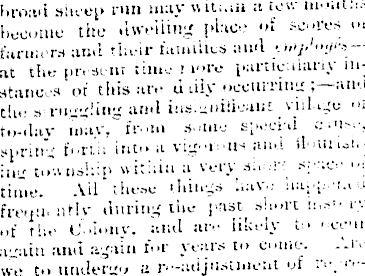 broad sheep run may within a few months
become the dwelling place of scores of
farmers and their families and employés—
at the present time more particularly in-
stances of this are daily occurring;—and
the struggling and insignificant village of
to-day may, from some special cause,
spring forth into a vigorous and flourish-
ing township within a very short space of
time. All these things have happened
frequently during the past short history
of the Colony, and are likely to occur
again and again for years to come. Are
we to undergo a re-adjustment of repre-